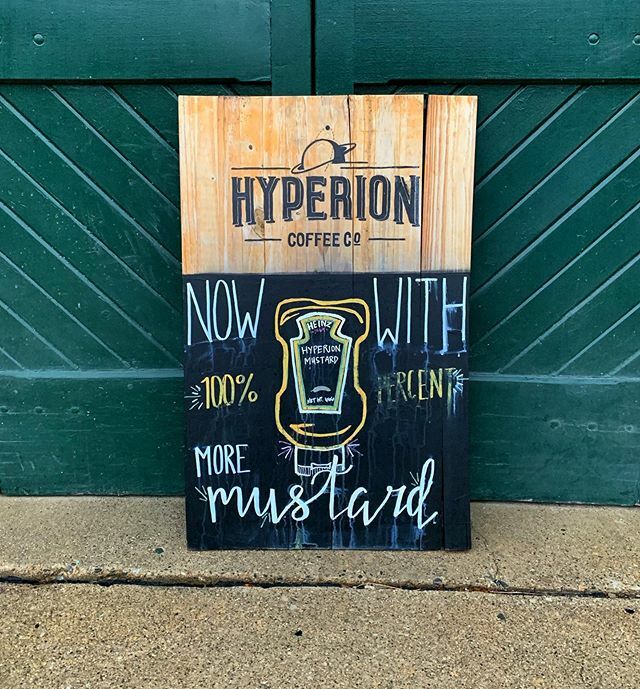 HYPERION
COFFEE CO
NOW WITH
HEINZ
HYPERION
MUSTARD
100% PERCENT
MORE
mustard